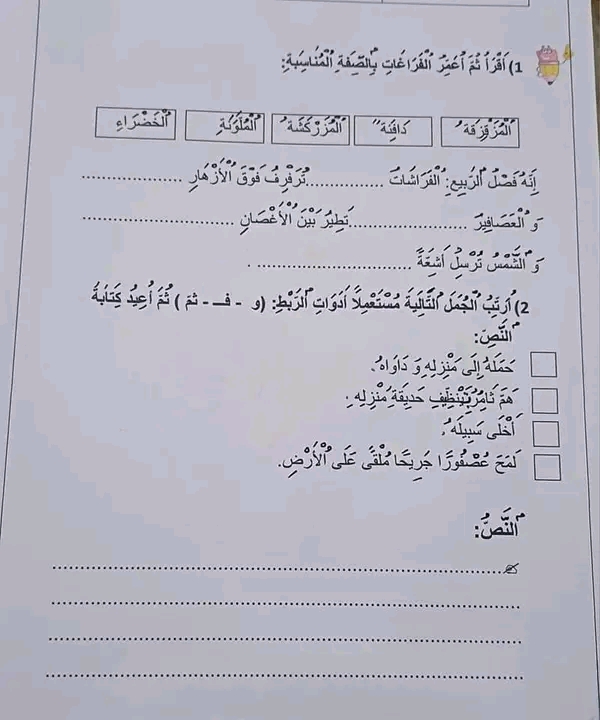 1) أَقْرَأُ ثُمَّ أُعَمِّرُ ٱلْفَرَاغَاتِ بِالصِّفَةِ ٱلْمُنَاسِبَةِ:
ٱلْمُزَقْزِقَةُ دَافِئَةً ٱلْمُزَرْكَشَةُ ٱلْمُلَوَّنَةِ ٱلْخَضْرَاءِ
إِنَّهُ فَصْلُ ٱلرَّبِيعِ: ٱلْفَرَاشَاتُ ...............تُرَفْرِفُ فَوْقَ ٱلْأَزْهَارِ ...................
وَ ٱلْعَصَافِيرُ .....................تَطِيرُ بَيْنَ ٱلْأَغْصَانِ .............................
وَ ٱلشَّمْسُ تُرْسِلُ أَشِعَّةً ............................... .
2) أُرَتِّبُ ٱلْجُمَلَ ٱلتَّالِيَةَ مُسْتَعْمِلًا أَدَوَاتِ ٱلرَّبْطِ: (و - فـ - ثمّ ) ثُمَّ أُعِيدُ كِتَابَةَ
ٱلنَّصِّ:
حَمَلَهُ إِلَى مَنْزِلِهِ وَ دَاوَاهُ.
هَمَّ ثَامِرٌ بِتَنْظِيفِ حَدِيقَةِ مَنْزِلِهِ.
أَخْلَى سَبِيلَهُ.
لَمَحَ عُصْفُورًا جَرِيحًا مُلْقًى عَلَى ٱلْأَرْضِ.
ٱلنَّصُّ: